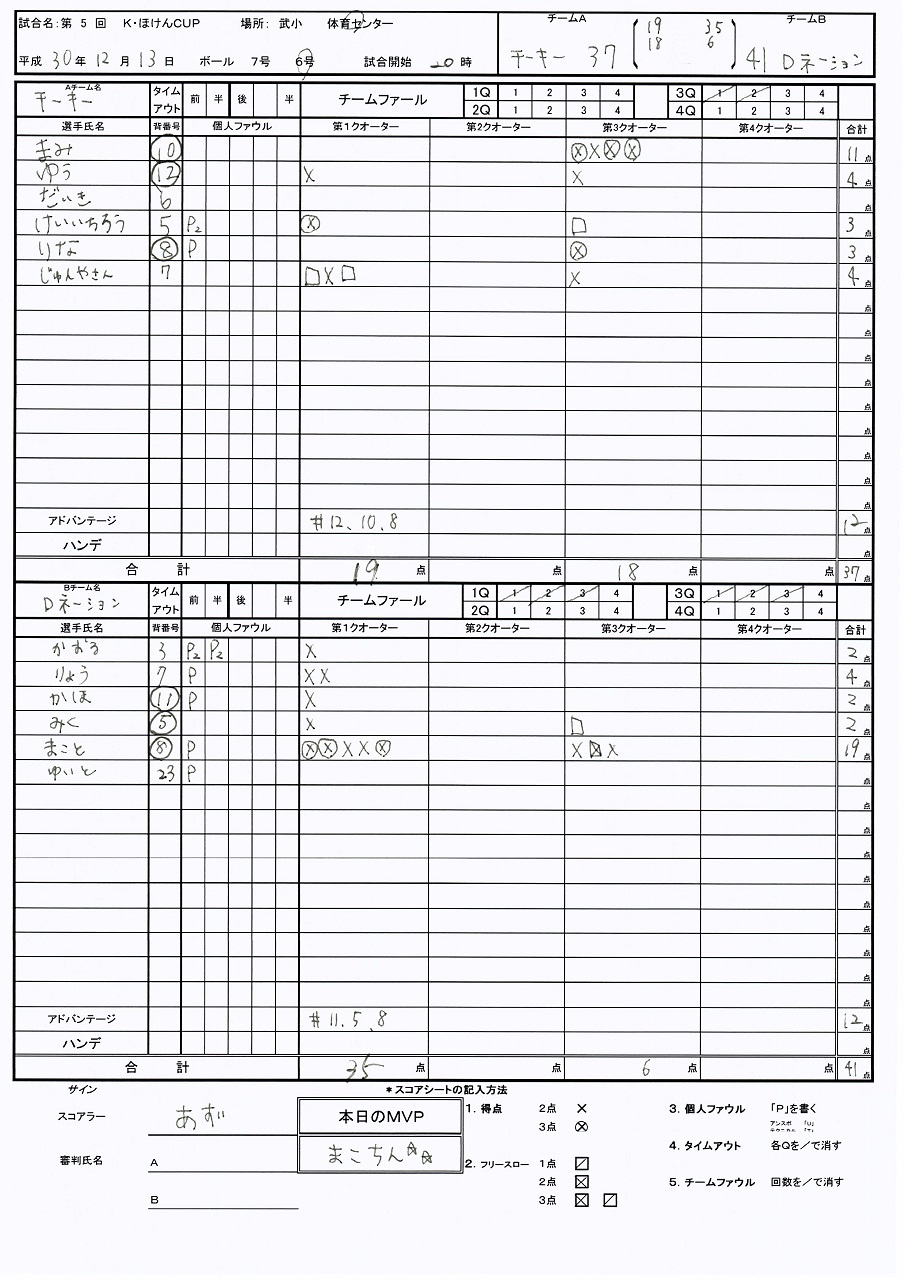 試合名:第 5 回 K・ほけんCUP 場所: 武小 体育センター
平成 30 年 12 月 13 日 ボール 7号 6号 試合開始 20 時
チームA チームB
チーキー 37 19 35 41 Dネーション
18 6
Aチーム名 タイムアウト 前 半 後 半 チームファール 1Q 1 2 3 4 3Q 1 2 3 4
チーキー 2Q 1 2 3 4 4Q 1 2 3 4
選手氏名 背番号 個人ファウル 第1クオーター 第2クオーター 第3クオーター 第4クオーター 合計
まみ 10 ⊗×⊗⊗ 11点
ゆう 12 × × 4点
だいき 6 点
けいいちろう 5 P2 ⊗ □ 3点
りな 8 P ⊗ 3点
じゅんやさん 7 □×□ × 4点
点
点
点
点
点
点
点
点
点
アドバンテージ #12、10、8 12点
ハンデ 点
合 計 19 点 点 18 点 点 37点
Bチーム名 タイムアウト 前 半 後 半 チームファール 1Q 1 2 3 4 3Q 1 2 3 4
Dネーション 2Q 1 2 3 4 4Q 1 2 3 4
選手氏名 背番号 個人ファウル 第1クオーター 第2クオーター 第3クオーター 第4クオーター 合計
かおる 3 P2 P2 × 2点
りょう 7 P ×× 4点
かほ 11 P × 2点
みく 5 × □ 2点
まこと 8 P ⊗⊗××⊗ ×☒× 19点
ゆいと 23 P 点
点
点
点
点
点
点
点
点
点
アドバンテージ #11、5、8 12点
ハンデ 点
合 計 35 点 点 6 点 点 41点
サイン *スコアシートの記入方法
スコアラー あず 本日のMVP 1. 得点 2点 × 3. 個人ファウル 「P」を書く
3点 ⊗ アンスポ 「U」
テクニカル 「T」
まこちん☆☆ 4. タイムアウト 各Qを/で消す
審判氏名 A 2. フリースロー 1点 ⍁
2点 ☒ 5. チームファウル 回数を/で消す
B 3点 ☒ ⍁